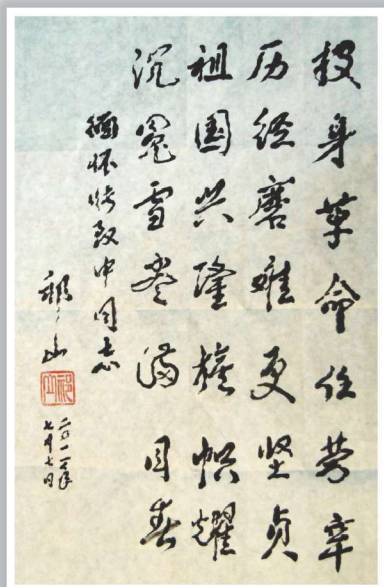 投身革命任劳辛
历经磨难更坚贞
祖国兴隆旗帜耀
沉冤雪尽满目春
缅怀张致中同志
二〇一一年
七月七日